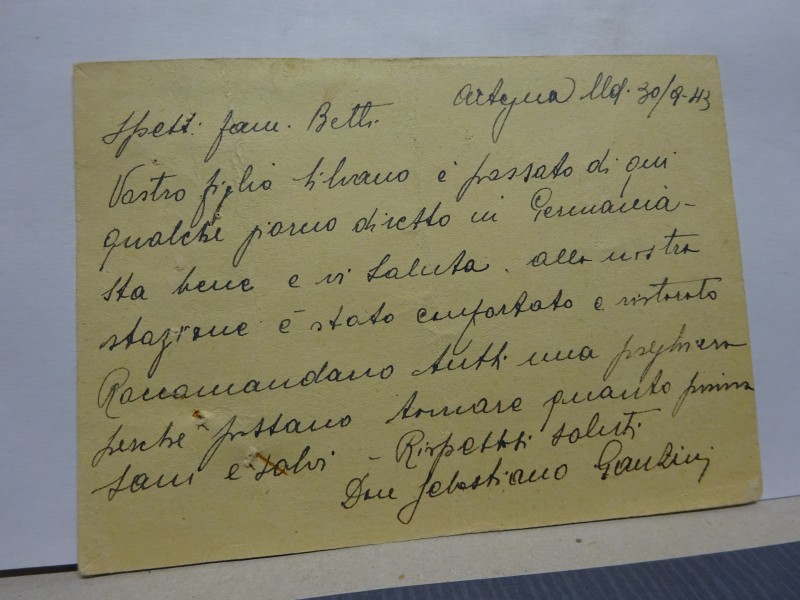 Artegna Ud. 30/9-43
Spett. fam. Betti
Vostro figlio Silvano è passato di qui
qualche giorno diretto in Germania -
sta bene e vi saluta. alla nostra
stazione è stato confortato e ristorato
Raccomandano tutti una preghiera
perchè possano tornare quanto prima
sani e salvi - Rispettosi saluti
Don Sebastiano